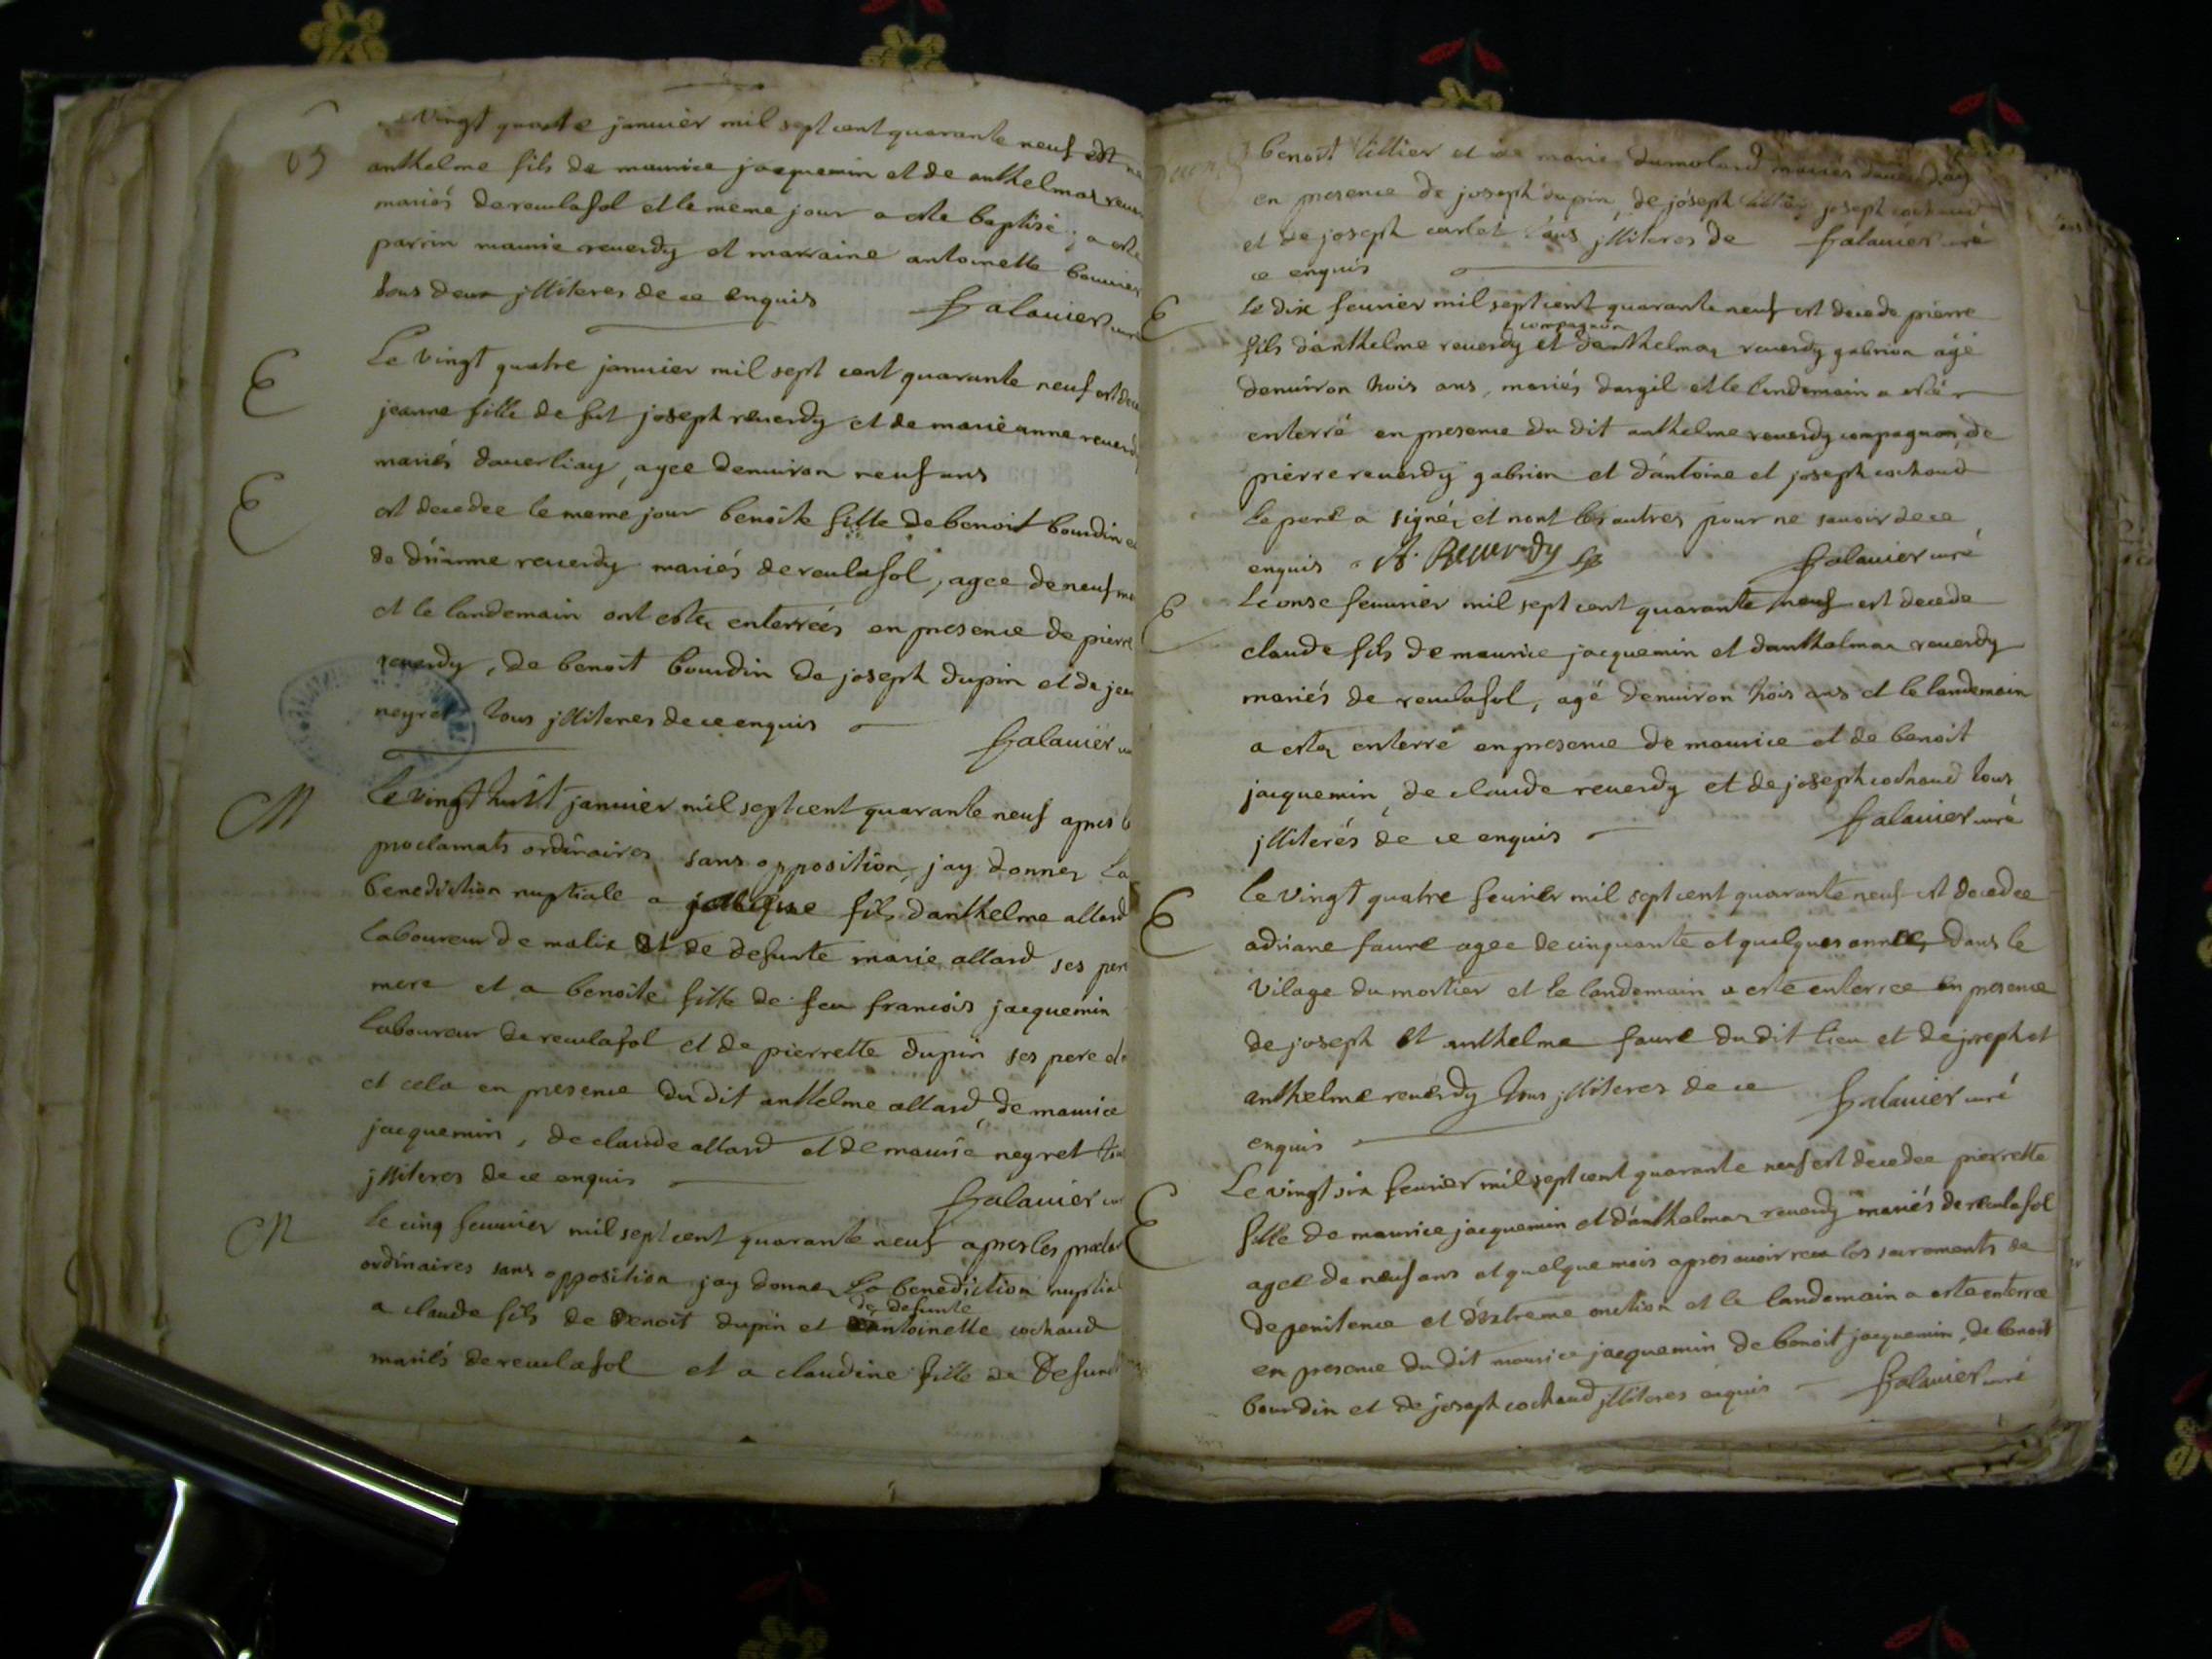 vingt quatre januier mil sept cent quarante neuf est
anthelme fils de maurice jacquemin et de anthelmaz
mariés de reculafol et le meme jour a este baptisé ; a este
parrin maurice reuerdy et marraine antoinette bouuier
tous deux jlliteres de ce enquis falauier curé
E Le vingt quatre januier mil sept cent quarante neuf est
jeanne fille de fut joseph reuerdy et de marie anne reuerdy
mariés dauerliay, agee denuiron neuf ans
E est decedee le meme jour benoite fille de benoit bourdin et
de drianne reuerdy mariés de reculafol, agee de neuf
et le landemain ont estez enterrées en presence de pierre
reuerdy, de benoit bourdin de joseph dupin et de
neyret tous jlliteres de ce enquis falauier
M Le vingt huit januier mil sept cent quarante neuf apres
proclamats ordinaires sans opposition, jay donnez La
benediction nuptiale a fils danthelme allard
laboureur de malix et de defunte marie allard ses pere
mere et a benoite fille de feu francois jacquemin
laboureur de reculafol et de pierrette dupin ses pere et
et cela en presence du dit anthelme allard, de maurice
jacquemin, de claude allard et de maurice neyret
jlliteres de ce enquis falauier
M le cinq feuurier mil sept cent quarante neuf apres les
ordinaires sans opposition jay donnez La benediction
de defunte
a claude fils de benoit dupin et antoinette cochaud
mariés de reculafol et a claudine fille de
benoit tillier et de marie dumolard mariés
en presence de joseph dupin, de joseph tillier, joseph cochaud
et de joseph carlet tous jlliteres de falauier curé
ce enquis
E le dix feurier mil sept cent quarante neuf est decede pierre
compagnon
fils danthelme reuerdy et danthelmaz reuerdy gabrion agé
denuiron trois ans, mariés dargil et le landemain a esté
enterré en presence du dit anthelme reuerdy compagnon, de
pierre reuerdy gabrion et dantoine et joseph cochaud
le pere a signéz et nont les autres pour ne sauoir de ce
enquis A. Reuerdy falauier curé
E Le onse feuurier mil sept cent quarante neuf est decede
claude fils de maurice jacquemin et danthelmaz reuerdy
mariés de reculafol, agé denuiron trois ans et le landemain
a estez enterré en presence de maurice et de benoit
jacquemin, de claude reuerdy et de joseph cochaud tous
jlliterés de ce enquis falauier curé
E le vingt quatre feurier mil sept cent quarante neuf est decedee
adriane faure agee de cinquante et quelques annees dans le
vilage du mortier et le landemain a este enterree en presence
de joseph et anthelme faure du dit lieu et de joseph et
anthelme reuerdy tous jlliteres de ce falauier curé
enquis
E Le vingt six feurier mil sept cent quarante neuf est decedee pierrette
fille de maurice jacquemin et danthelmaz reuerdy mariés de reculafol
agee de neuf ans et quelque mois apres auoir receu les sacrements de
de penitence et dextreme onction et le landemain a este enterree
en presence du dit maurice jacquemin de benoit jacquemin, de benoit
bourdin et de joseph cochaud jlliteres enquis falauier curé